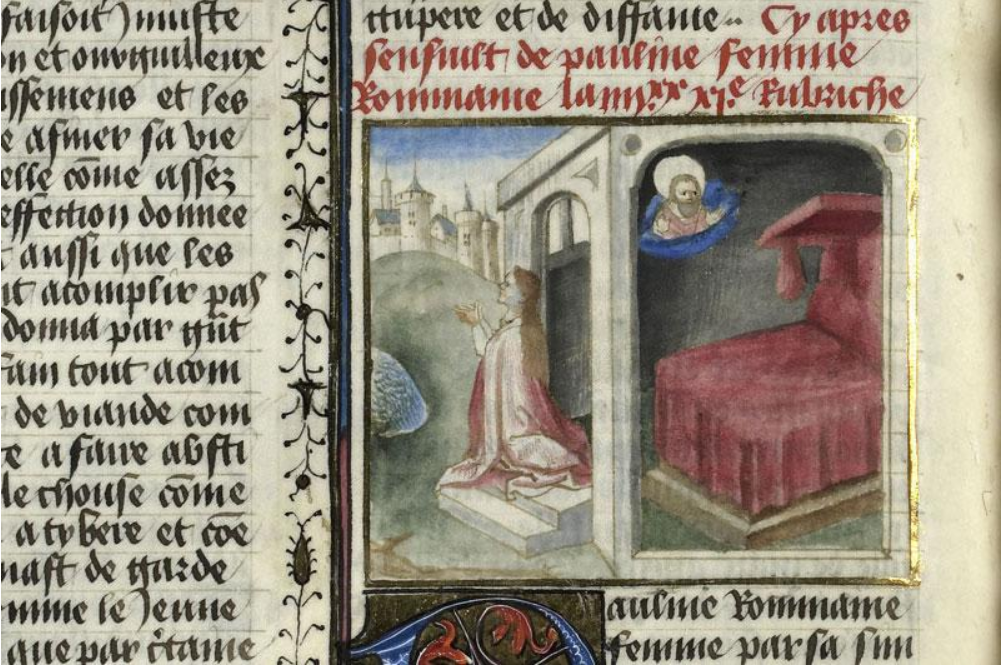 faisoit) iniuste
n et orworguilleux
issemens et les
e asmer sa vie
elle cõme assez
effection donnee
t aussi que les
nt acomplir
donna par
fain tout acom
de viande com
e a faire absti
le chouse cõme
a tybere et cõe
nast de garde
mme le Jeune
que par
tupere et de diffame..
Cy apres
sensuit de pauline femme
Rommaine Rubriche
auline Rommaine
femme par sa sim